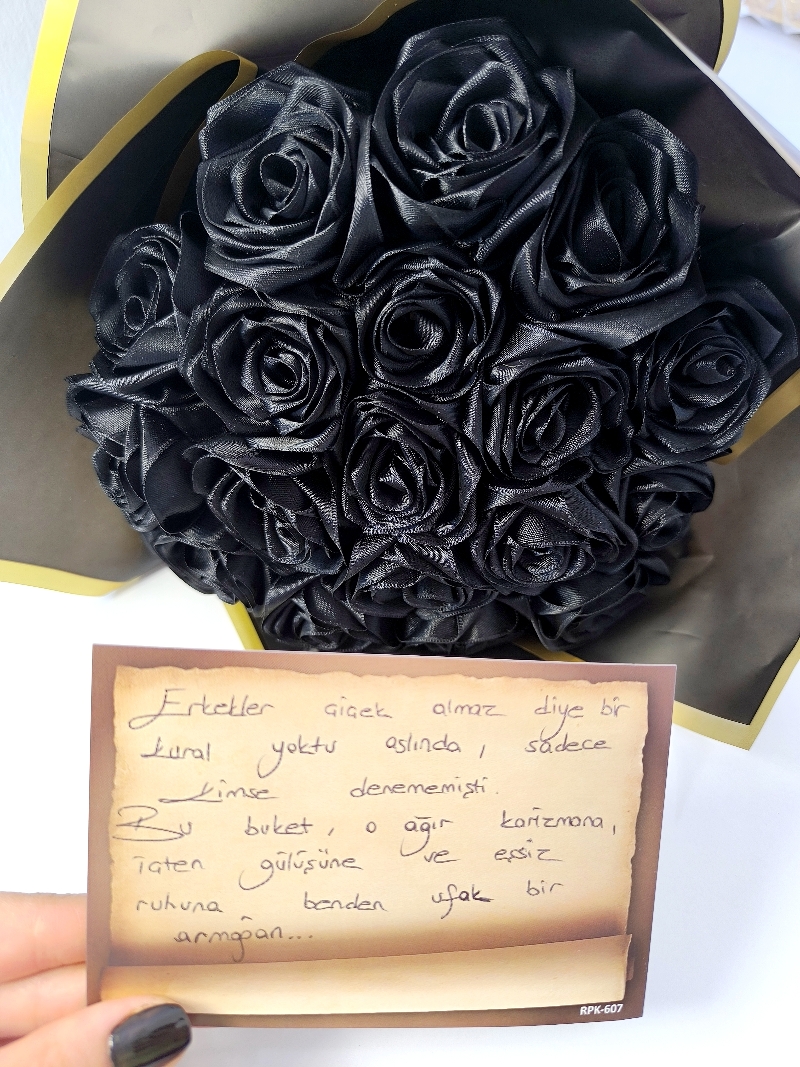 Erkekler çiçek almaz diye bir
kural yoktu aslında, sadece
kimse denememişti.
Bu buket, o ağır karizmana,
içten gülüşüne ve eşsiz
ruhuna benden ufak bir
armağan...
RPK-607